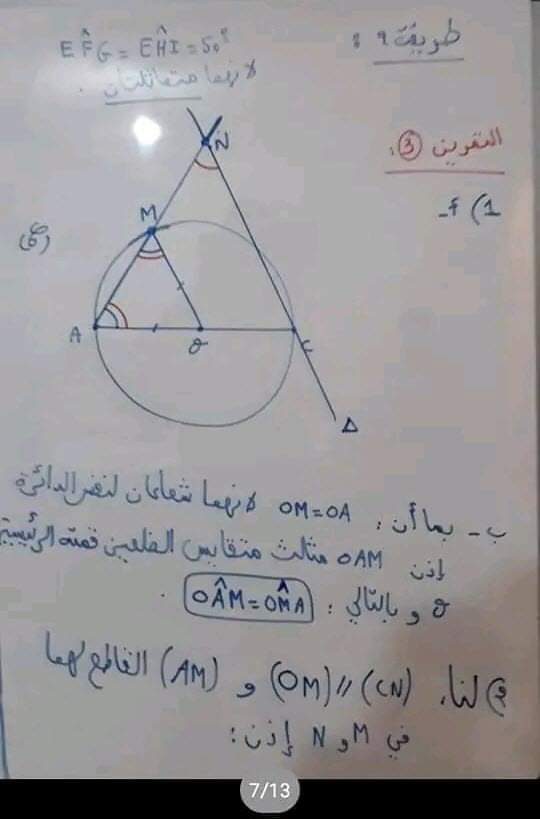 طريقة 9 :
EF̂G = EĤI = 50°
لانهما متماثلتان .
التمرين ③ :
1) أ-
N
M
A
O
C
Δ
ب- بما أن : OM=OA لانهما شعاعان لنفس الدائرة
إذن OAM مثلث متقايس الضلعين قمته الرئيسية
O و بالتالي : OÂM=OM̂A .
لنا، (OM)//(CN) و (AM) القاطع لهما
في M و N إذن :
7/13